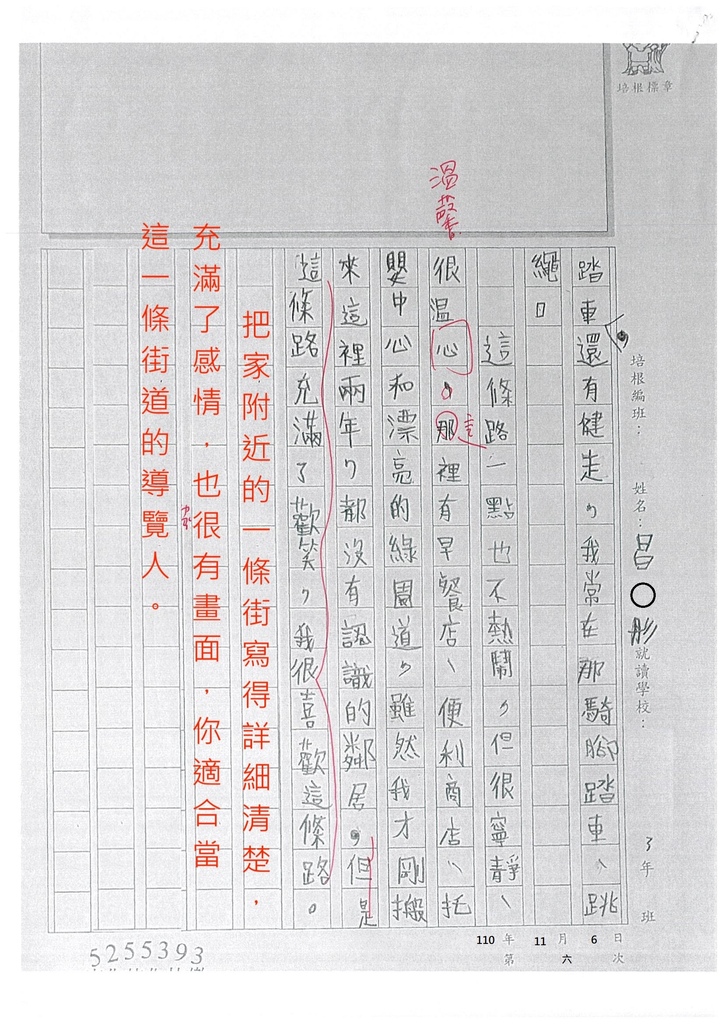 培根標章
培根編班：
姓名：昌○彤
就讀學校：
3年 班
110年 11月 6日
第 六 次
踏車還有健走，我常在那騎腳踏車、跳
繩。
這條路一點也不熱鬧，但很寧靜、
很溫心，那裡有早餐店、便利商店、托
溫馨
這
嬰中心和漂亮的綠園道，雖然我才剛搬
來這裡兩年，都沒有認識的鄰居，但是
這條路充滿了歡笑，我很喜歡這條路。
把家附近的一條街寫得詳細清楚，
充滿了感情，也很有畫面，你適合當
這一條街道的導覽人。
5255393